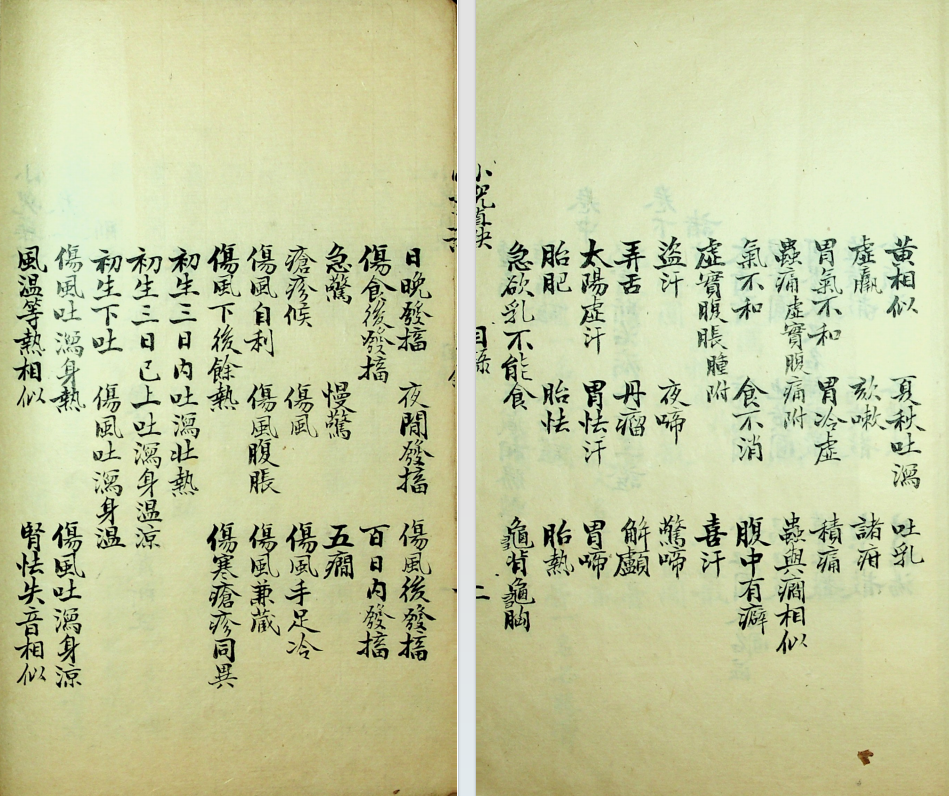 日晚發搐　夜間發搐　傷風後發搐
傷食後發搐　百日內發搐
急驚　慢驚　五癇
瘡疹候　傷風　傷風手足冷
傷風自利　傷風腹脹　傷風兼藏
傷風下後餘熱　傷寒瘡疹同異
初生三日內吐瀉壯熱
初生三日已上吐瀉身溫涼
初生下吐　傷風吐瀉身溫
傷風吐瀉身熱　傷風吐瀉身涼
風溫等熱相似　腎怯失音相似
黃相似　夏秋吐瀉　吐乳
虛羸　欬嗽　諸疳
胃氣不和　胃冷虛　積痛
蟲痛虛實腹痛附　蟲與癇相似
氣不和　食不消　腹中有癖
虛實腹脹腫附
盜汗　夜啼　喜汗
弄舌　丹瘤　驚啼
太陽虛汗　胃怯汗　解顱
胎肥　胎怯　胃啼
急欲乳不能食　胎熱
龜背龜胸
小兒直訣　目錄　二